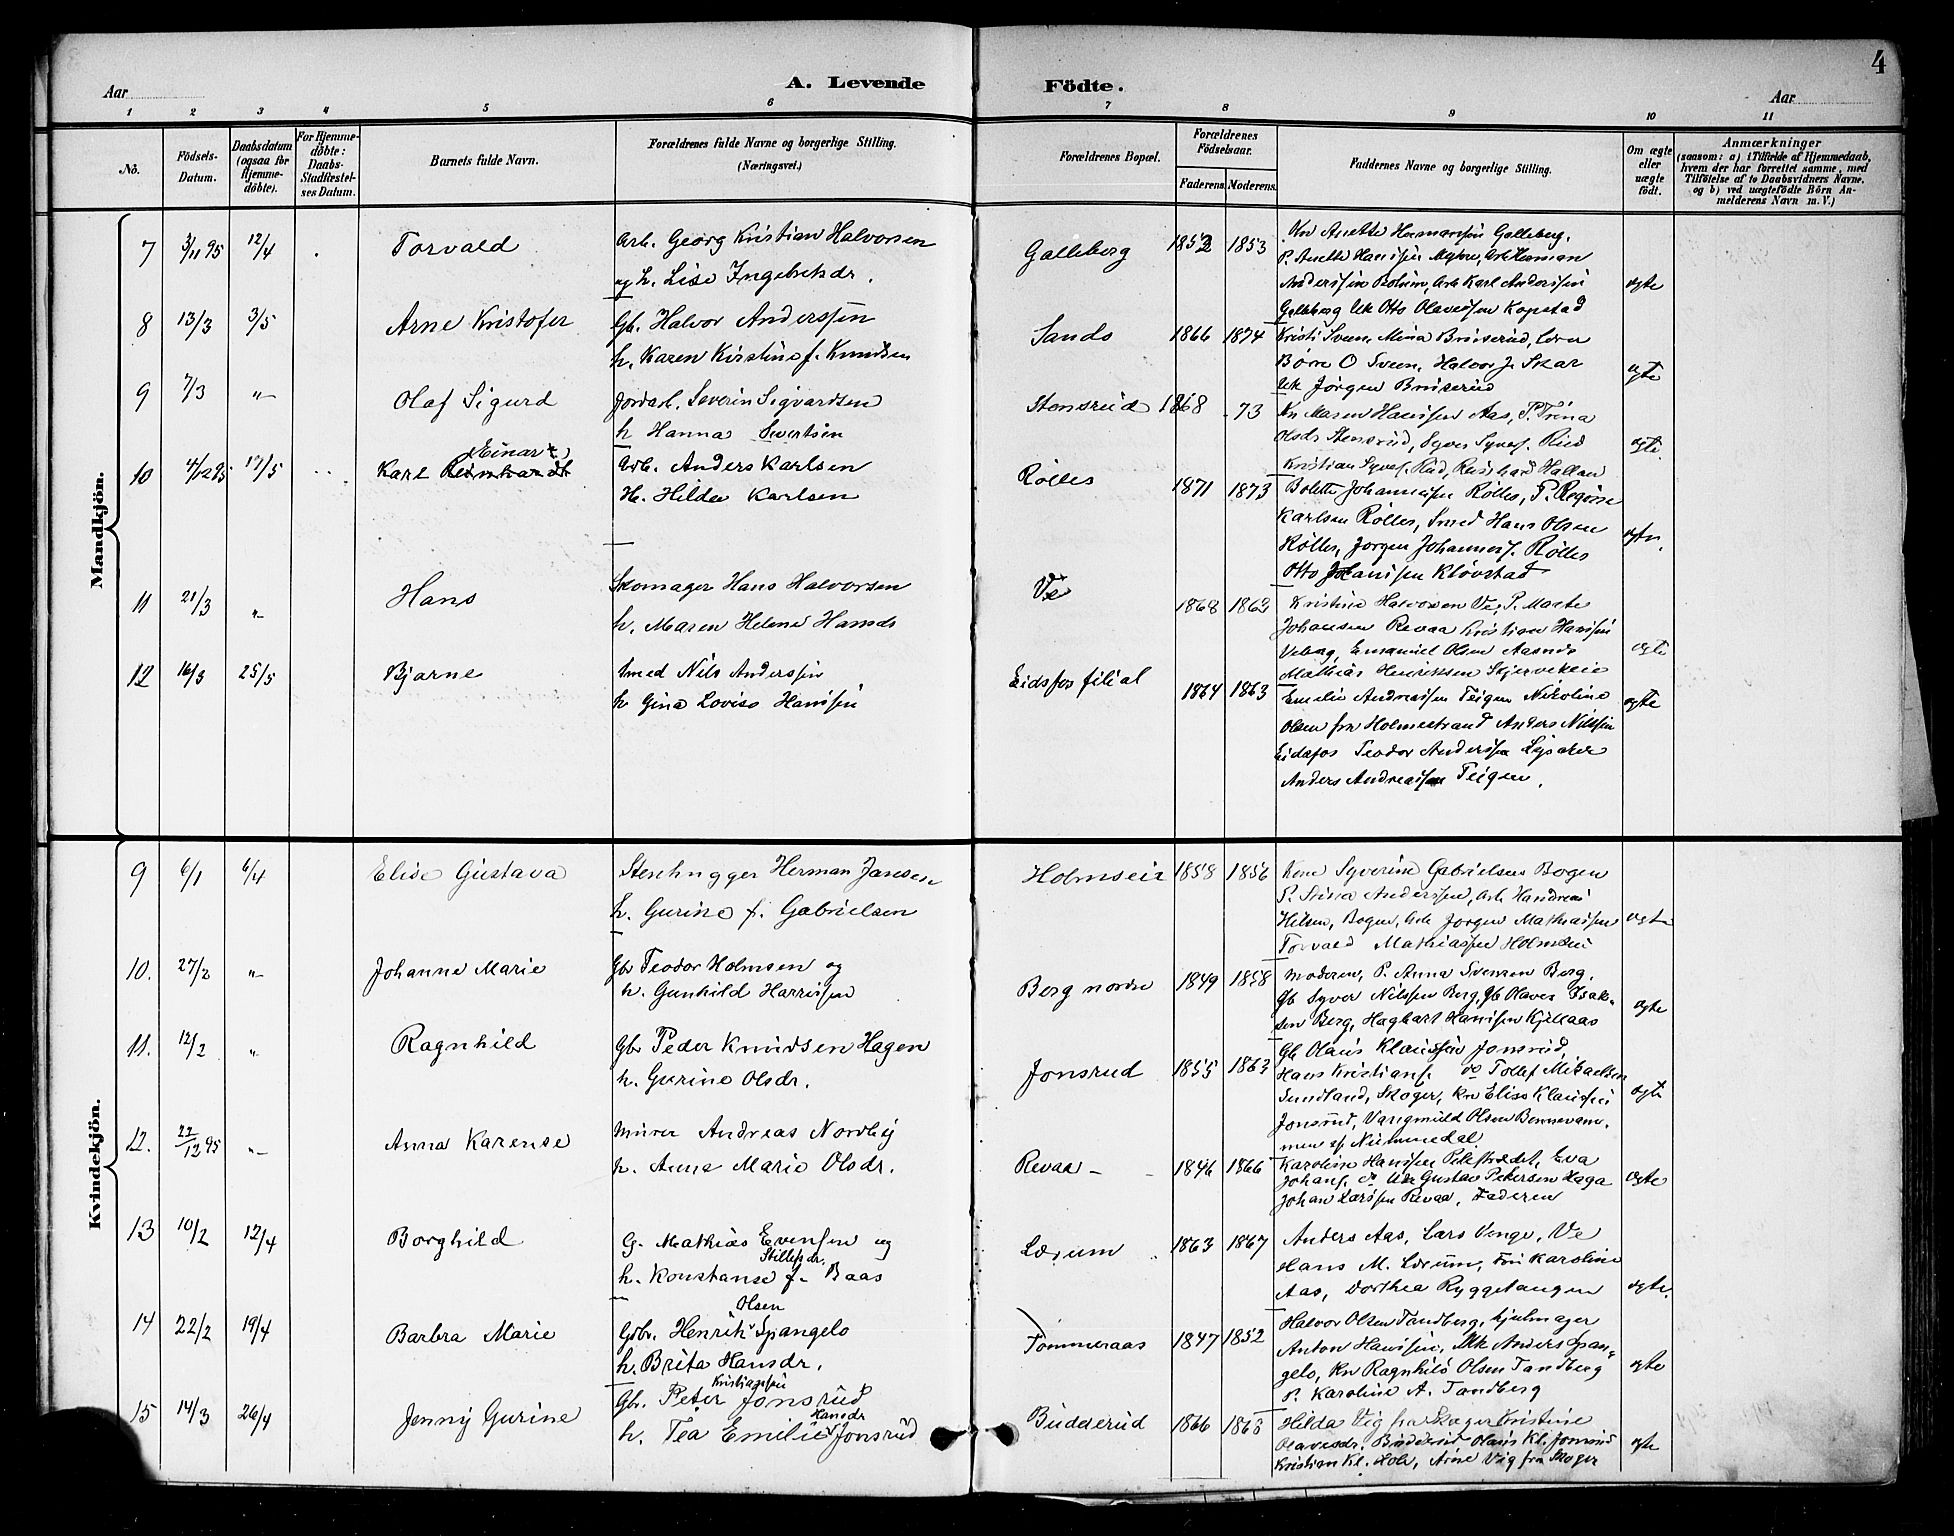 4
A. Levende Födte.
Aar
Aar
1 2 3 4 5 6 7 8 9 10 11
No.
Födsels-Datum.
Daabsdatum (ogsaa for Hjemme-döbte).
For Hjemme-döbte: Daabs-Stadfæstel-ses Datum.
Barnets fulde Navn.
Forældrenes fulde Navne og borgerlige Stilling. (Næringsvei.)
Forældrenes Bopæl.
Forældrenes Födselsaar.
Faderens. Moderens.
Faddernes Navne og borgerlige Stilling.
Om ægte eller uægte födt.
Anmærkninger
(saasom: a) i Tilfælde af Hjemmedaab, hvem der har forrettet samme, med Tilföielse af to Daabsvidners Navne, og b) ved uægtefödte Börn An-melderens Navn m. V.)
Mandkjön.
7 3/11 95 12/4 Torvald
Arb. Georg Kristian Halvorsen
og h. Lise Ingebretsdr.
Galleberg 1852 1853
Kn Anette Hermansen Galleberg,
P. Anette Hanssen Myhre, Arb Herman
Anderssen Solum, Arb Karl Anderssen
Galleberg Uk Otto Olavessen Kopstad
ægte
8 13/3 3/5 Arne Kristofer
Gb. Halvor Anderssen
h. Karen Kirstine f. Knudsen
Sands 1866 1874
Kristi Sveen, Mina Bruserud, Lærer
Børre O Sveen, Halvor J. Skar
Uk Jörgen Bruserud
ægte
9 7/3 " Olaf Sigurd
Jordarb. Severin Sigvardsen
h Hanna Sivertsen
Stensrud 1868 -73
Kn Maren Hanssen Aas, P. Trina
Olsdr Stensrud, Syver Syvers. Rud
Kristian Syvers. Rud, Reinhard Hallan
ægte.
10 4/12 95 17/5 Karl Reinhardt (Einar)
Arb. Anders Karlsen
H. Hilda Karlsen
Rølles 1871 1873
Bolette Johannessen Rølles, P. Regine
Karlsen Rølles, Smed Hans Olsen
Rølles, Jørgen Johannes. Rølles
Otto Johanssen Kløvstad
ægte.
11 21/3 " Hans
Skomager Hans Halvorsen
h. Maren Helene Hansdr
Ve 1868 1863
Kristine Halvorsen Ve, P. Marte
Johansen Revaa Kristian Hanssen
Veberg, Emanuel Olsen Aasnes
Mathias Henriksen
ægte
12 16/3 25/5 Bjarne
Smed Nils Anderssen
h Gina Lovise Hanssen
Eidsfos filial 1864 1863
Emilie Andreassen Teigen Nikoline
Olsen fra Holmestrand Anders Nilssen
Eidsfos Teodor Anderssen
Anders Andreassen Teigen.
ægte
Kvindekjön.
9 6/1 6/4 Elise Gustava
Stenhugger Herman Jansen
h. Gurine f. Gabrielsen
Holmseie 1858 1856
Kone Syverine Gabrielsen Bogen
P. Stina Anderssen, Arb Handreas
Bogen, Arb Jørgen Mathiassen
Torvald Mathiassen Holmseie
ægte
10. 27/2 " Johanne Marie
Gb Teodor Holmsen og
h. Gunhild Harrissen
Berg nordre 1849 1858
Moderen, P. Anna Svensen Berg,
Gb Syver Nilssen Berg, Gb Olaves Isak-
sen Berg, Hagbart Hanssen Kjellaas
ægte
11. 12/2 " Ragnhild
Gbr Peder Knudsen Hagen
h. Gurine Olsdr.
Jonsrud 1855 1863
Gb Olaus Klaussen Jonsrud,
Hans Kristians. og Tollef Mikaelsen
Sundland, Skoger, Kn Elise Klaussen
Jonsrud, Olsen
men af Nummedal
ægte
12. 22/12 95 " Anna Karense
Murer Andreas Nordhej
h. Anne Marie Olsdr.
Revaa 1846 1866
Karoline Hanssen Eva
Johans. Uk Gustav Pettersen Haga
Johan Larssen Revaa, Faderen
ægte
13 10/2 12/4 Borghild
G. Mathias Evensen og
h. Konstanse f. Stillefsdr. Baas
Lærum 1863 1867
Anders Aas, Lars Venge, Ve
Hans M. Lærum, Karoline
Aas, Dorthea Ryggetangen
ægte.
14 22/2 19/4 Barbra Marie
Gbr. Henrik Olsen Spangelo
h. Brita Hansdr.
Tommeraas 1847 1852
Halvor Olsen Tandberg, Hjulmager
Anton Hanssen, Uk Anders Span-
gelo, Kn Ragnhild Olsen Tandberg
P. Karoline A. Tandberg
ægte
15 14/3 26/4 Jenny Gurine
Gbr. Peter Kristianssen Jonsrud
h. Tea Emilie Hansdr Jonsrud
Budderud 1866 1865
Hilda Vig fra Skoger Kristine
Olavesdr. Budderud Olaus Kl. Jonsrud
Kristian Kl. Hole, Arne Vig fra Skoger
ægte